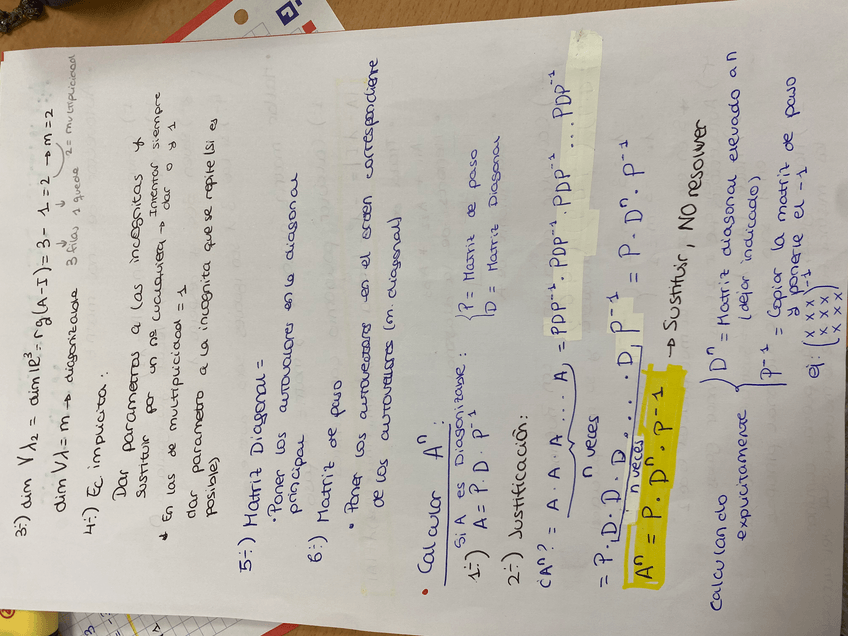 3÷) dim Vλ₂ = dim ℝ³ - rg(A-I) = 3 - 1 = 2 → m = 2
3 filas 1 queda 2 = multiplicidad
dim Vλ = m → diagonizable
4÷) Ec implicita:
Dar parametros a las incognitas y
sustituir por un nº cualquiera → Intentar siempre
dar 0 y 1
En las de multiplicidad = 1
dar parametro a la incognita que se repite (si es
posible)
5÷) Matriz Diagonal =
• Poner los autovalores en la diagonal
principal
6÷) Matriz de paso
• Poner los autovectores en el orden correspondiente
de los autovalores (m. diagonal)
• Calcular Aⁿ:
Si A es Diagonizable:
1÷) A = P · D · P⁻¹
{ P = Matriz de paso
D = Matriz Diagonal
2÷) Justificación:
¿Aⁿ? = A · A · A ... A = PDP⁻¹ · PDP⁻¹ · PDP⁻¹ ... PDP⁻¹
n veces
= P · D · D · D · ... · D · P⁻¹ = P · Dⁿ · P⁻¹
n veces
Aⁿ = P · Dⁿ · P⁻¹ → Sustituir, NO resolver
Calculando
explicitamente
{ Dⁿ = Matriz diagonal elevado a n
(dejar indicado)
P⁻¹ = Copiar la matriz de paso
y ponerle el -1
ej: (x x x
x x x
x x x)⁻¹